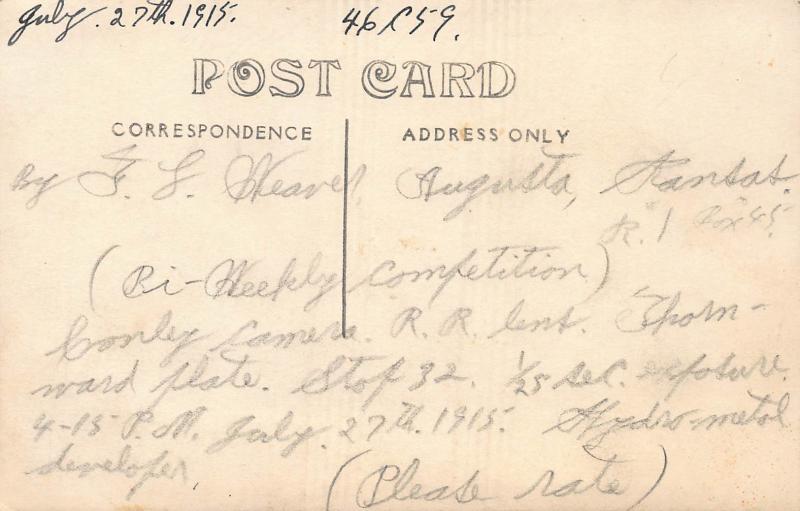 July. 27th. 1915. 46 C 59.
POST CARD
CORRESPONDENCE ADDRESS ONLY
By F. L. Weaver, Augusta, Kansas.
R. 1 Box 45.
(Bi-Weekly Competition)
Conley Camera. R. R. lens. Thorn-
ward plate. Stop 32. 1/25 sec. exposure.
4-15 P.M. July. 27th. 1915. Hydro-metol
developer
(Please rate)